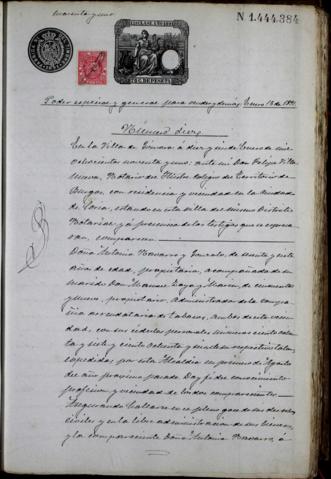 noventa y uno
N 1.444.384
Poder especial y general para Enero 13 de 1891.
Número diez
En la Villa de á diez y
ochocientos noventa y uno: ante mi Don Felipe Villa
nueva, Notario del Ilustre Colegio del Territorio de
Burgos, con residencia y vecindad en la Ciudad
de Soria, estando en esta villa del mismo Distrito
Notarial y á presencia de los testigos que se expresa
ran, comparecen
Doña Antonia Navarro y Gonzalo, de y siete
años de edad, propietaria, acompañada de su
marido Don Manuel y de cincuenta
y nueve, propietario, Administrador de la compa
ñia arrendataria de Tabacos. Ambos de esta vecin
dad, con sus cédulas personales números ciento ochen
ta y siete y ciento ochenta y respectivas
expedidas por esta Alcaldia en primero de Agosto
del año proximo pasado. Doy fé de conocimiento
profesion y vecindad de todos comparecientes
Asegurando hallarse en el pleno goce de sus derechos
civiles y en la libre administracion de sus bienes,
y la compareciente Doña Antonia Navarro, á